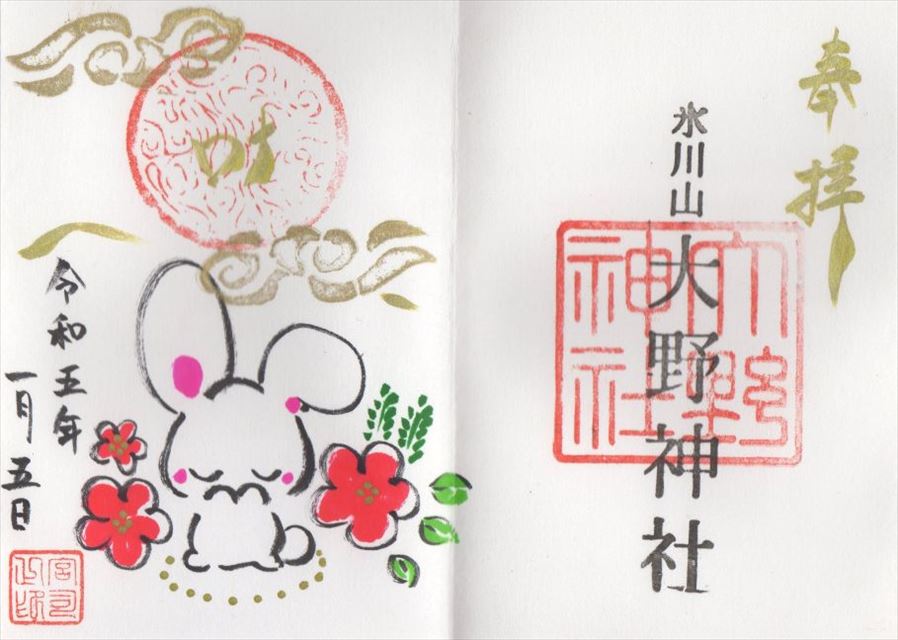 奉拝
氷川山
大野神社
大野
神社
令和五年
一月五日